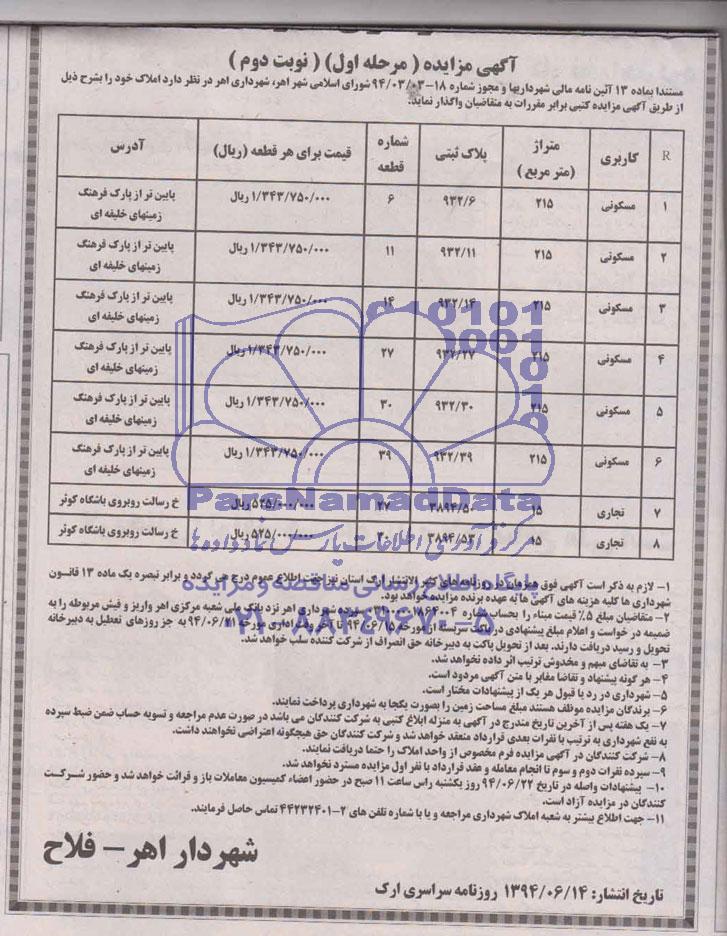 آگهی مزایده ( مرحله اول) ( نوبت دوم )
مستندا بماده ۱۳ آئین نامه مالی شهرداریها و مجوز شماره ۱۸-۹۴/۰۳/۰۳ شورای اسلامی شهر اهر، شهرداری اهر در نظر دارد املاک خود را بشرح ذیل
از طریق آگهی مزایده کتبی برابر مقررات به متقاضیان واگذار نماید.
R کاربری متراژ (متر مربع) پلاک ثبتی شماره قطعه قیمت برای هر قطعه (ریال) آدرس
۱ مسکونی ۲۱۵ ۹۳۲/۶ ۶ ۱/۳۴۳/۷۵۰/۰۰۰ ریال پایین تر از پارک فرهنگ زمینهای خلیفه ای
۲ مسکونی ۲۱۵ ۹۳۲/۱۱ ۱۱ ۱/۳۴۳/۷۵۰/۰۰۰ ریال پایین تر از پارک فرهنگ زمینهای خلیفه ای
۳ مسکونی ۲۱۵ ۹۳۲/۱۴ ۱۴ ۱/۳۴۳/۷۵۰/۰۰۰ ریال پایین تر از پارک فرهنگ زمینهای خلیفه ای
۴ مسکونی ۲۱۵ ۹۳۲/۲۷ ۲۷ ۱/۳۴۳/۷۵۰/۰۰۰ ریال پایین تر از پارک فرهنگ زمینهای خلیفه ای
۵ مسکونی ۲۱۵ ۹۳۲/۳۰ ۳۰ ۱/۳۴۳/۷۵۰/۰۰۰ ریال پایین تر از پارک فرهنگ زمینهای خلیفه ای
۶ مسکونی ۲۱۵ ۹۳۲/۳۹ ۳۹ ۱/۳۴۳/۷۵۰/۰۰۰ ریال پایین تر از پارک فرهنگ زمینهای خلیفه ای
۷ تجاری ۱۵ ۳۸۹۴/۵۰ ۲۷ ۵۲۵/۰۰۰/۰۰۰ ریال خ رسالت روبروی باشگاه کوثر
۸ تجاری ۱۵ ۳۸۹۴/۵۳ ۳۰ ۵۲۵/۰۰۰/۰۰۰ ریال خ رسالت روبروی باشگاه کوثر
ParsNamadData
مرکز فرآوری اطلاعات پارس نماد داده ها
پایگاه اطلاع رسانی مناقصه و مزایده
۰۲۱-۸۸۳۴۹۶۷۰-۵
۱- لازم به ذکر است آگهی فوق همزمان در روزنامه های کثیر الانتشار ارک استان نیز جهت اطلاع عموم درج می گردد و برابر تبصره یک ماده ۱۳ قانون
شهرداری ها کلیه هزینه های آگهی ها به عهده برنده مزایده خواهد بود.
۲- متقاضیان مبلغ ۵٪ قیمت مبناء را بحساب شماره سپرده شهرداری اهر نزد بانک ملی شعبه مرکزی اهر واریز و فیش مربوطه را به
ضمیمه در خواست و اعلام مبلغ پیشنهادی در پاکت سربسته از مورخه ۹۴/۰۶/۱۵ تا آخر وقت اداری مورخه ۹۴/۰۶/۲۱ به جز روزهای تعطیل به دبیرخانه
تحویل و رسید دریافت دارند. بعد از تحویل پاکت به دبیرخانه حق انصراف از شرکت کننده سلب خواهد شد.
۳- به تقاضای مبهم و مخدوش ترتیب اثر داده نخواهد شد.
۴- هر گونه پیشنهاد و تقاضا مغایر با متن آگهی مردود است.
۵- شهرداری در رد یا قبول هر یک از پیشنهادات مختار است.
۶- برندگان مزایده موظف هستند مبلغ مساحت زمین را بصورت یکجا به شهرداری پرداخت نمایند.
۷- یک هفته پس از آخرین تاریخ مندرج در آگهی به منزله ابلاغ کتبی به شرکت کنندگان می باشد در صورت عدم مراجعه و تسویه حساب ضمن ضبط سپرده
به نفع شهرداری به ترتیب با نفرات بعدی قرارداد منعقد خواهد شد و شرکت کنندگان حق هیچگونه اعتراضی نخواهند داشت.
۸- شرکت کنندگان در آگهی مزایده فرم مخصوص از واحد املاک را حتما دریافت نمایند.
۹- سپرده نفرات دوم و سوم تا انجام معامله و عقد قرارداد با نفر اول مزایده مسترد نخواهد شد.
۱۰- پیشنهادات واصله در تاریخ ۹۴/۰۶/۲۲ روز یکشنبه راس ساعت ۱۱ صبح در حضور اعضاء کمیسیون معاملات باز و قرائت خواهد شد و حضور شرکت
کنندگان در مزایده آزاد است.
۱۱- جهت اطلاع بیشتر به شعبه املاک شهرداری مراجعه و یا با شماره تلفن های ۲-۴۴۲۳۲۴۰۱ تماس حاصل فرمایند.
شهردار اهر – فلاح
تاریخ انتشار: ۱۳۹۴/۰۶/۱۴ روزنامه سراسری ارک